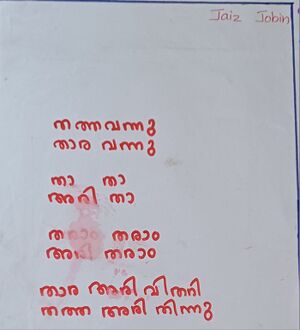 Jaiz Jobin
തത്ത വന്നു
താര വന്നു
താ താ
അരി താ
തരാം തരാം
അരി തരാം
താര അരി വിതറി
തത്ത അരി തിന്നു